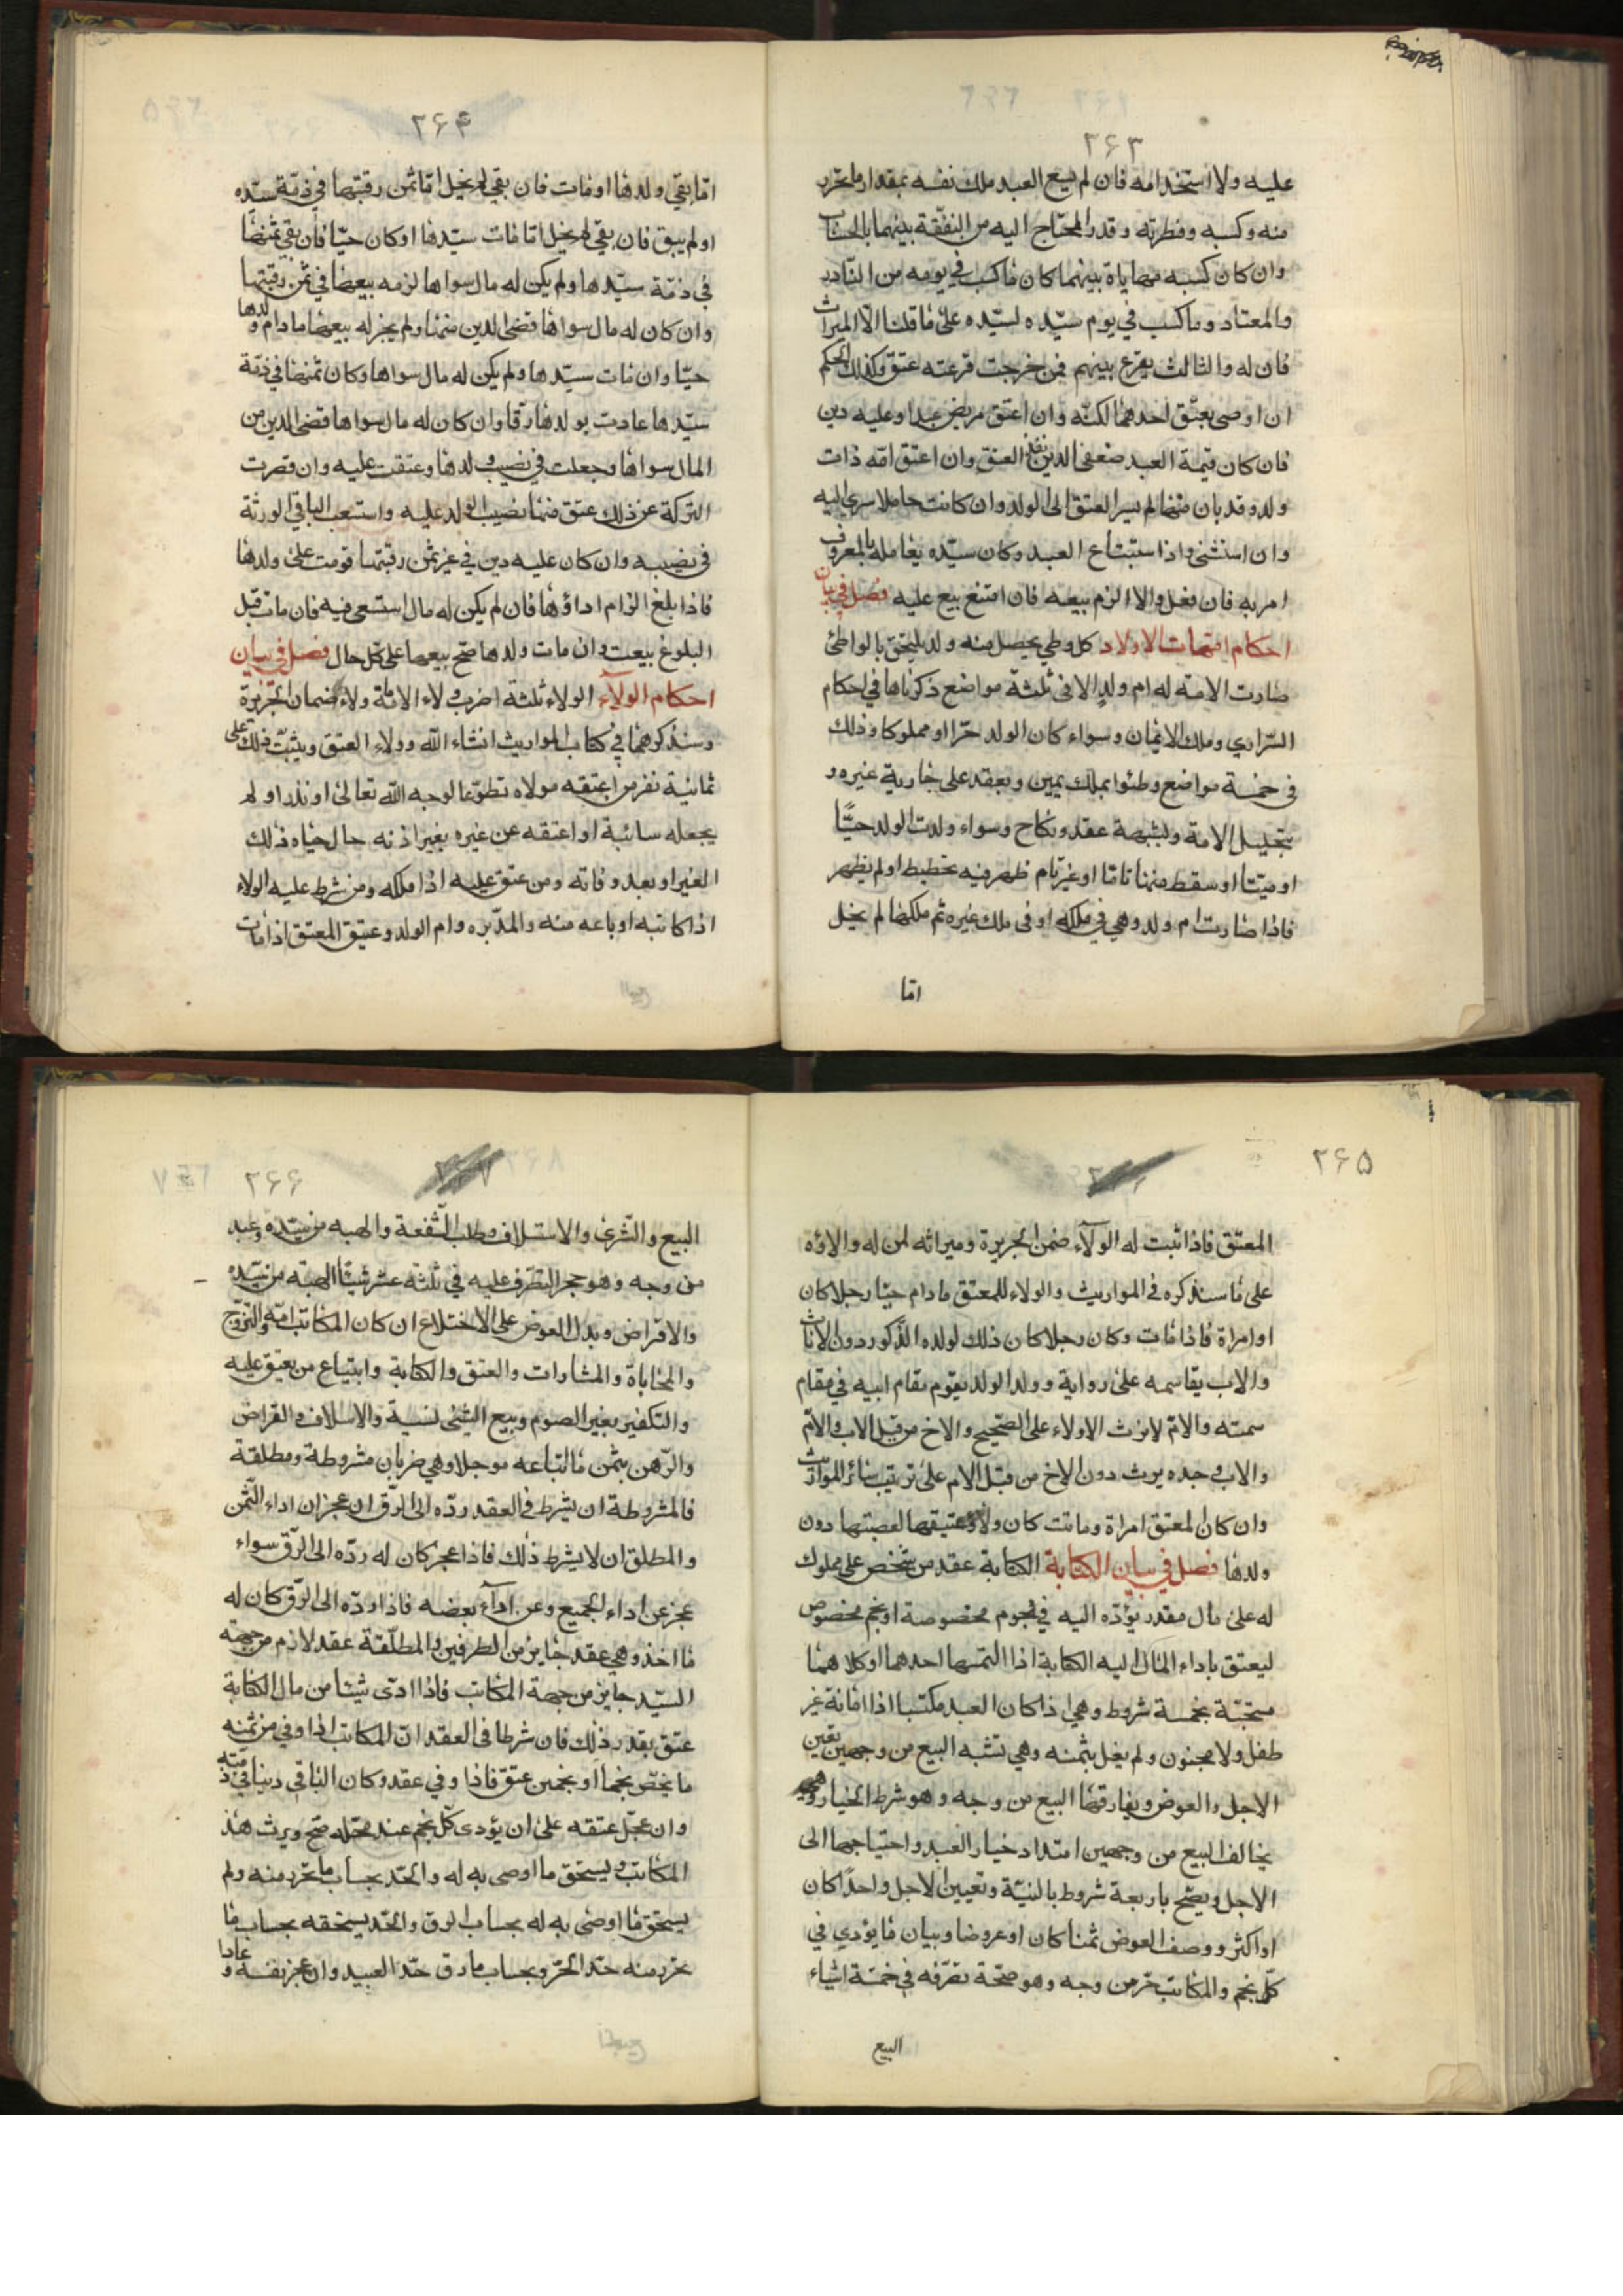 ٢۶٣
عليه ولا استخدامه فان لم يبع العبد ملك نفسه بمقدار ما تحرر
منه وكسبه وفطرته وقدر المحتاج اليه من النفقة بينهما بالحساب
وان كان كسبه مهاياة بينهما كان ما كسب في يومه من النادر
والمعتاد وما كسب في يوم سيّده لسيّده على ما قلنا الا الميراث
فان له والثالث يقرع بينهم فمن خرجت قرعته عتق وكذلك الحكم
ان اوصى بعتق احدهما لكنّه وان اعتق مريض عبدا وعليه دين
فان كان قيمة العبد ضعفى الدين نفذ العتق وان اعتق امة ذات
ولد وقد بان منها لم يسر العتق الى الولد وان كانت حاملا سرى اليه
وان استثنى واذا استباع العبد وكان سيّده يعامله بالمعروف
امر به فان فعل والا الزم بيعه فان امتنع بيع عليه فصل في بيان
احكام امّهات الاولاد كل وطى يحصل منه ولد يلتحق بالواطئ
صارت الامة له ام ولد الا في ثلثة مواضع ذكرناها في احكام
السّراري وملك الايمان وسواء كان الولد حرّا او مملوكا وذلك
في خمسة مواضع وطئوا بملك يمين وبعقد على جارية غيره و
بتحليل الامة وبشبهة عقد ونكاح وسواء ولدت الولد حيًّا
او ميّتا او سقط منها تامّا او غير تام ظهر فيه تخطيط او لم يظهر
فاذا صارت ام ولد وهي في ملكه او في ملك غيره ثم ملكها لم يخل
امّا
٢۶۴
امّا بقي ولدها او مات فان بقي لم يخل امّا ثمن رقبتها في ذمّة سيّده
او لم يبق فان بقي لم يخل امّا مات سيّدها او كان حيّا فان بقي ثمنها
في ذمّة سيّدها ولم يكن له مال سواها لزمه بيعها في ثمن رقبتها
وان كان له مال سواها قضى الدين منها ولم يجز له بيعها ما دام ولدها
حيّا وان مات سيّدها ولم يكن له مال سواها وكان ثمنها في ذمّة
سيّدها عادت بولدها رقا وان كان له مال سواها قضى الدين من
المال سواها وجعلت في نصيب ولدها وعتقت عليه وان قصرت
التركة عن ذلك عتق منها نصيب الولد عليه واستسعى الباقي الورثة
في نصيبه وان كان عليه دين في غير ثمن رقبتها قومت على ولدها
فاذا بلغ الزام اداؤها فان لم يكن له مال استسعى فيه فان مات قبل
البلوغ بيعت وان مات ولدها صح بيعها على كل حال فصل في بيان
احكام الولاء الولاء ثلثة اضرب ولاء الامامة ولاء ضمان الجريرة
وسنذكرهما في كتاب المواريث انشاء الله وولاء العتق ويثبت ذلك على
ثمانية نفر من اعتقه مولاه تطوّعا لوجه الله تعالى او نذر او لم
يجعله سائبة او اعتقه عن غيره بغير اذنه حال حياه ذلك
الغير او بعد وفاته ومن عتق عليه اذا ملكه ومن شرط عليه الولاء
اذا كاتبه او باعه منه والمدّبره وام الولد وعتيق المعتق اذا مات
٢۶۵
المعتق فاذا ثبت له الولاء ضمن الجريرة وميراثه لمن له ولاؤه
على ما سنذكره في المواريث والولاء للمعتق ما دام حيّا رجلا كان
او امراة فاذا مات وكان رجلا كان ذلك لولده الذكور دون الاناث
والاب يقاسمه على رواية وولد الولد يقوم مقام ابيه في مقام
سمته والامّ لا يرث الولاء على الصحيح والاخ من قبل الاب والامّ
والاب وجده يرث دون الاخ من قبل الام على ترتيب سائر المواريث
وان كان المعتق امراة وماتت كان ولاء عتيقها لعصبتها دون
ولدها فصل في بيان الكتابة الكتابة عقد من شخص على مملوك
له على مال مقدر يؤدّه اليه في نجوم مخصوصة او نجم مخصوص
ليعتق باداء المال اليه الكتابة اذا التمسها احدهما او كلاهما
مستحبّة بخمسة شروط وهي اذا كان العبد مكتسبا اذا امانة غير
طفل ولا مجنون ولم يغل بثمنه وهي تشبه البيع من وجهين تعين
الاجل والعوض ويفارقها البيع من وجه وهو شرط الخيار وهي
يخالف البيع من وجهين امتداد خيار العبد واحتياجها الى
الاجل ويصّح باربعة شروط بالنيّة وتعيين الاجل واحدًا كان
او اكثر ووصف العوض ثمنا كان او عروضا وبيان ما يؤدي في
كلّ نجم والمكاتب حرّ من وجه وهو صحّة تصرّفه في خمسة اشياء
البيع
٢۶۶
البيع والشّرى والاستلاف وطلب الشّفعة والهبه من سيّده وعبد
من وجه وهو حجر التصّرف عليه في ثلثة عشر شيئا الهبة من سيّده
والاقراض وبدل العوض على الاختلاع ان كان المكاتب امة والتزوّج
والمحاباة والمشارات والعتق والكتابة وابتياع من يعتق عليه
والتكفير بغير الصوم وبيع الشئ نسية والاسلاف والقراض
والرّهن بثمن ما ابتاعه موجلا وهي ضربان مشروطة ومطلقة
فالمشروطة ان يشرط في العقد ردّه الى الرّق ان عجز ان اداء الثّمن
والمطلق ان لا يشرط ذلك فاذا عجز كان له ردّه الى الرّق سواء
عجز عن اداء الجميع وعن اداء بعضه فاذا ردّه الى الرّق كان له
ما اخذ وهي عقد جايز من الطرفين والمطلّقة عقد لازم من جهة
السيّد جايز من جهة المكاتب فاذا ادّى شيئا من مال الكتابة
عتق بقدر ذلك فان شرطا في العقد انّ المكاتب اذا وفي من ثمنه
ما يخصّ نجما او نجمين عتق فاذا وفي عقد وكان الباقي دينا في ذمّته
وان عجّل عتقه على ان يؤدى كلّ نجم عند محلّه صح ويرث هذا
المكاتب ويستحق ما اوصى به له والحدّ بحساب ما تحرر منه ولم
يستحق ما اوصى به له بحساب الرق والحدّ يستحقه بحساب ما
تحرر منه حدّ الحرّ وبحساب ما رق حدّ العبيد وان عجز نفسه وعادا